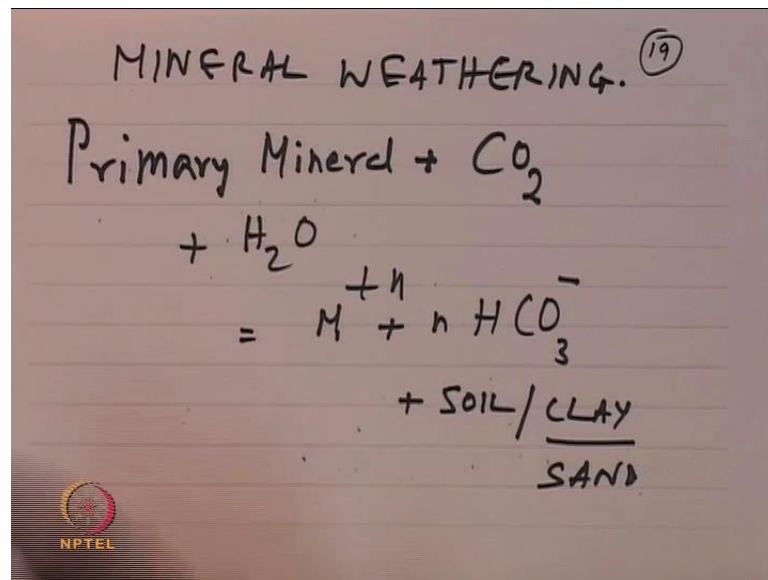 MINERAL WEATHERING. 19
Primary Minerel + CO₂
+ H₂O
= M⁺ⁿ + n HCO₃⁻
+ SOIL / CLAY
SAND
NPTEL